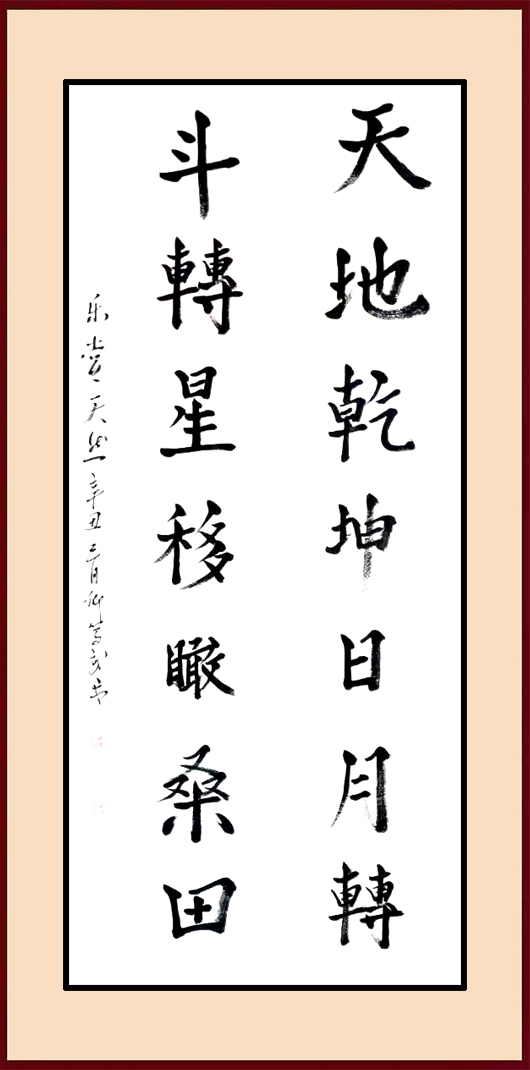 天地乾坤日月轉
斗轉星移瞰桑田
乐堂天然辛丑三月